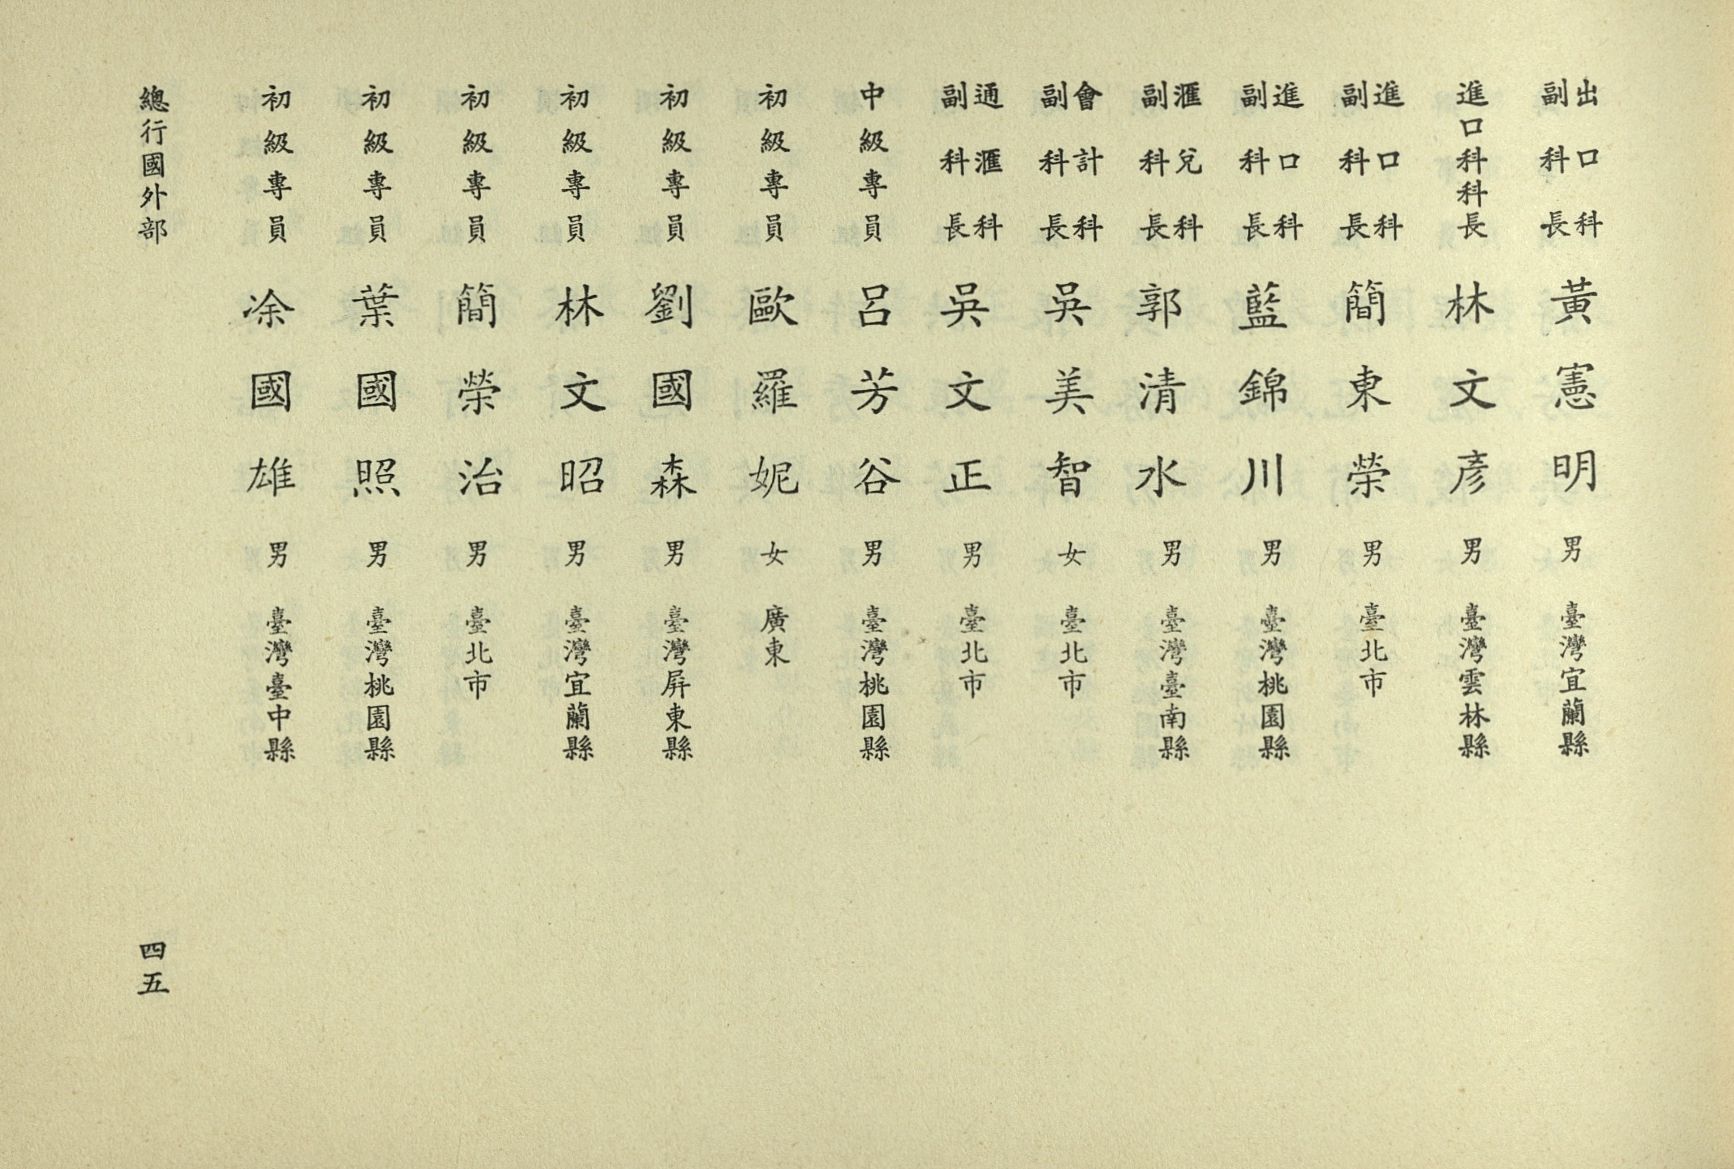 出口科副科長 黃憲明 男 臺灣宜蘭縣
進口科科長 林文彥 男 臺灣雲林縣
進口科副科長 簡東榮 男 臺北市
進口科副科長 藍錦川 男 臺灣桃園縣
滙兌科副科長 郭清水 男 臺灣臺南縣
會計科副科長 吳美智 女 臺北市
通滙科副科長 吳文正 男 臺北市
中級專員 呂芳谷 男 臺灣桃園縣
初級專員 歐羅妮 女 廣東
初級專員 劉國森 男 臺灣屏東縣
初級專員 林文昭 男 臺灣宜蘭縣
初級專員 簡榮治 男 臺北市
初級專員 葉國照 男 臺灣桃園縣
初級專員 凃國雄 男 臺灣臺中縣
總行國外部 四五